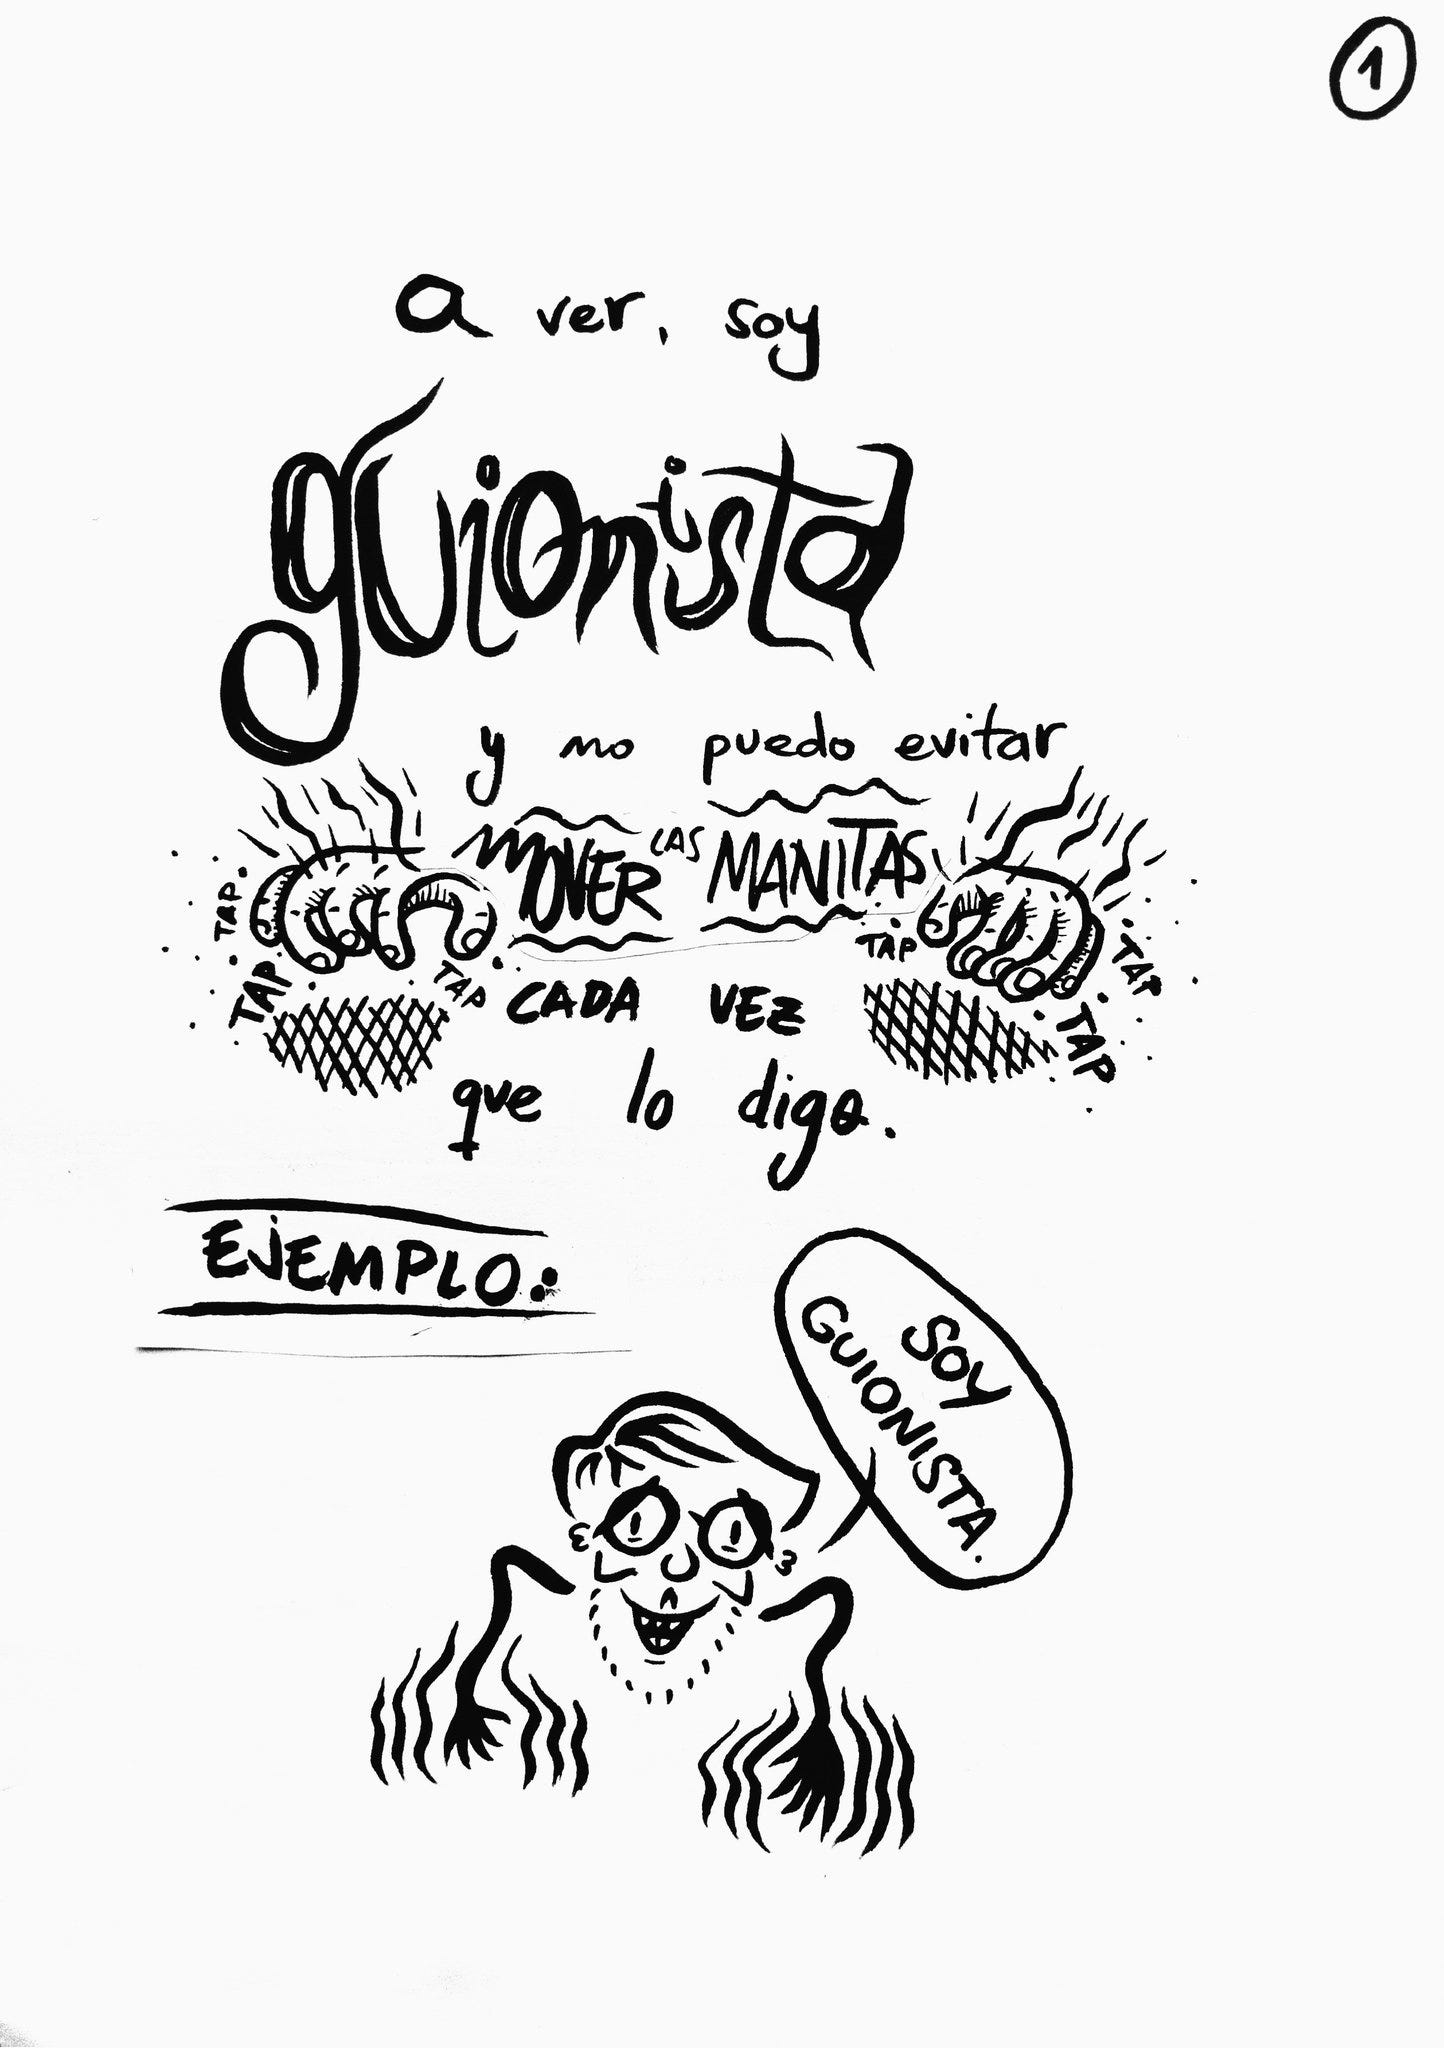 1
a ver, soy
guionista
y no puedo evitar
MOVER LAS MANITAS
TAP
TAP
TAP
TAP
TAP
TAP
CADA VEZ
que lo digo.
EJEMPLO:
SOY
GUIONISTA.